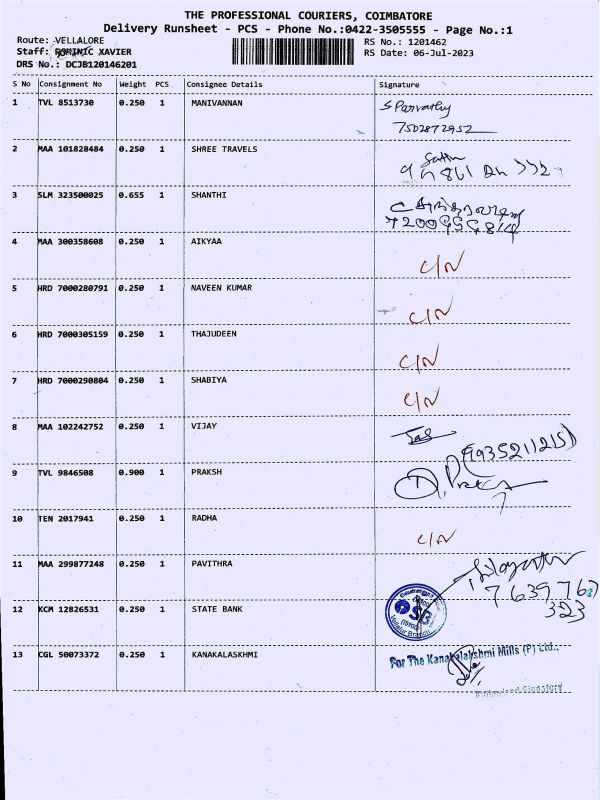 THE PROFESSIONAL COURIERS, COIMBATORE
Delivery Runsheet - PCS - Phone No.:0422-3505555 - Page No.:1
Route: VELLALORE
RS No.: 1201462
Staff: DOMINIC XAVIER
RS Date: 06-Jul-2023
DRS No.: DCJB120146201
S No Consignment No Weight PCS Consignee Details Signature
1 TVL 8513730 0.250 1 MANIVANNAN S Parvathy
7502872952
2 MAA 101828484 0.250 1 SHREE TRAVELS
3 SLM 323500025 0.655 1 SHANTHI
4 MAA 300358608 0.250 1 AIKYAA C/N
5 HRD 7000280791 0.250 1 NAVEEN KUMAR C/N
6 HRD 7000305159 0.250 1 THAJUDEEN C/N
7 HRD 7000290804 0.250 1 SHABIYA C/N
8 MAA 102242752 0.250 1 VIJAY
9 TVL 9846508 0.900 1 PRAKSH
10 TEN 2017941 0.250 1 RADHA C/N
11 MAA 299877248 0.250 1 PAVITHRA
7639767
323
12 KCM 12826531 0.250 1 STATE BANK
13 CGL 50073372 0.250 1 KANAKALASKHMI For The Kanakalakshmi Mills (P) Ltd.,
Authorised Signatory